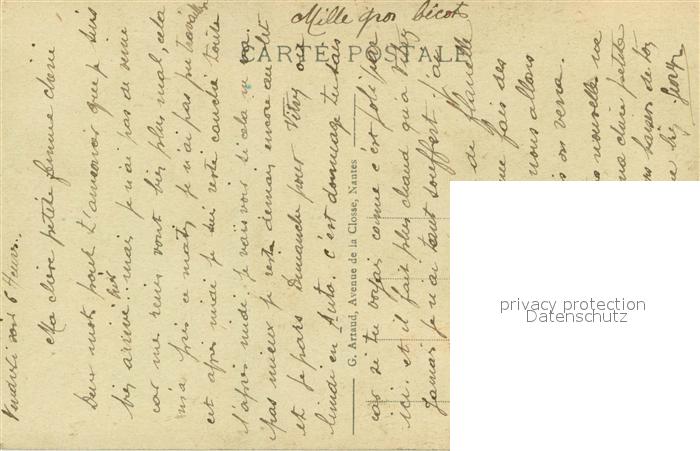 Mille gros bécots
CARTE POSTALE
Vendredi soir 6 Heures.
Ma chère petite femme chérie
Deux mots pour t'annoncer que je suis
bien arrivé hier mais je n'ai pas de veine
car mes reins vont bien plus mal, cela
m'a pris ce matin je n'ai pas pu travailler
cet après midi je suis resté couché toute
l'après midi je vais voir si cela ne va
pas mieux je reste demain encore au
et je pars Dimanche pour Vitry ou
lundi en Auto. c'est dommage tu sais
G. Artaud, Avenue de la Closse, Nantes
car si tu voyais comme c'est joli par
ici. et il fait plus chaud qu'a Vitry
Jamais je n'ai tant souffert j'ai
de flanelle
me fais des
nous allons
on verra.
nouvelle ma
ma chère petite
bons baisers de ton
Georges
privacy protection
Datenschutz